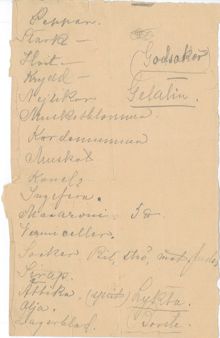 Peppar.
Stark –
Hvit –
Krydd –
Nejlikor
Muskotblomma
Kardemumma
Muskot
Kanel
Ingefära.
Macaroni.
Vermiceller.
Socker
Sirap.
Ättika.
Olja.
Lagerblad.
Godsaker
Gelatin.
Lykta
Borste.